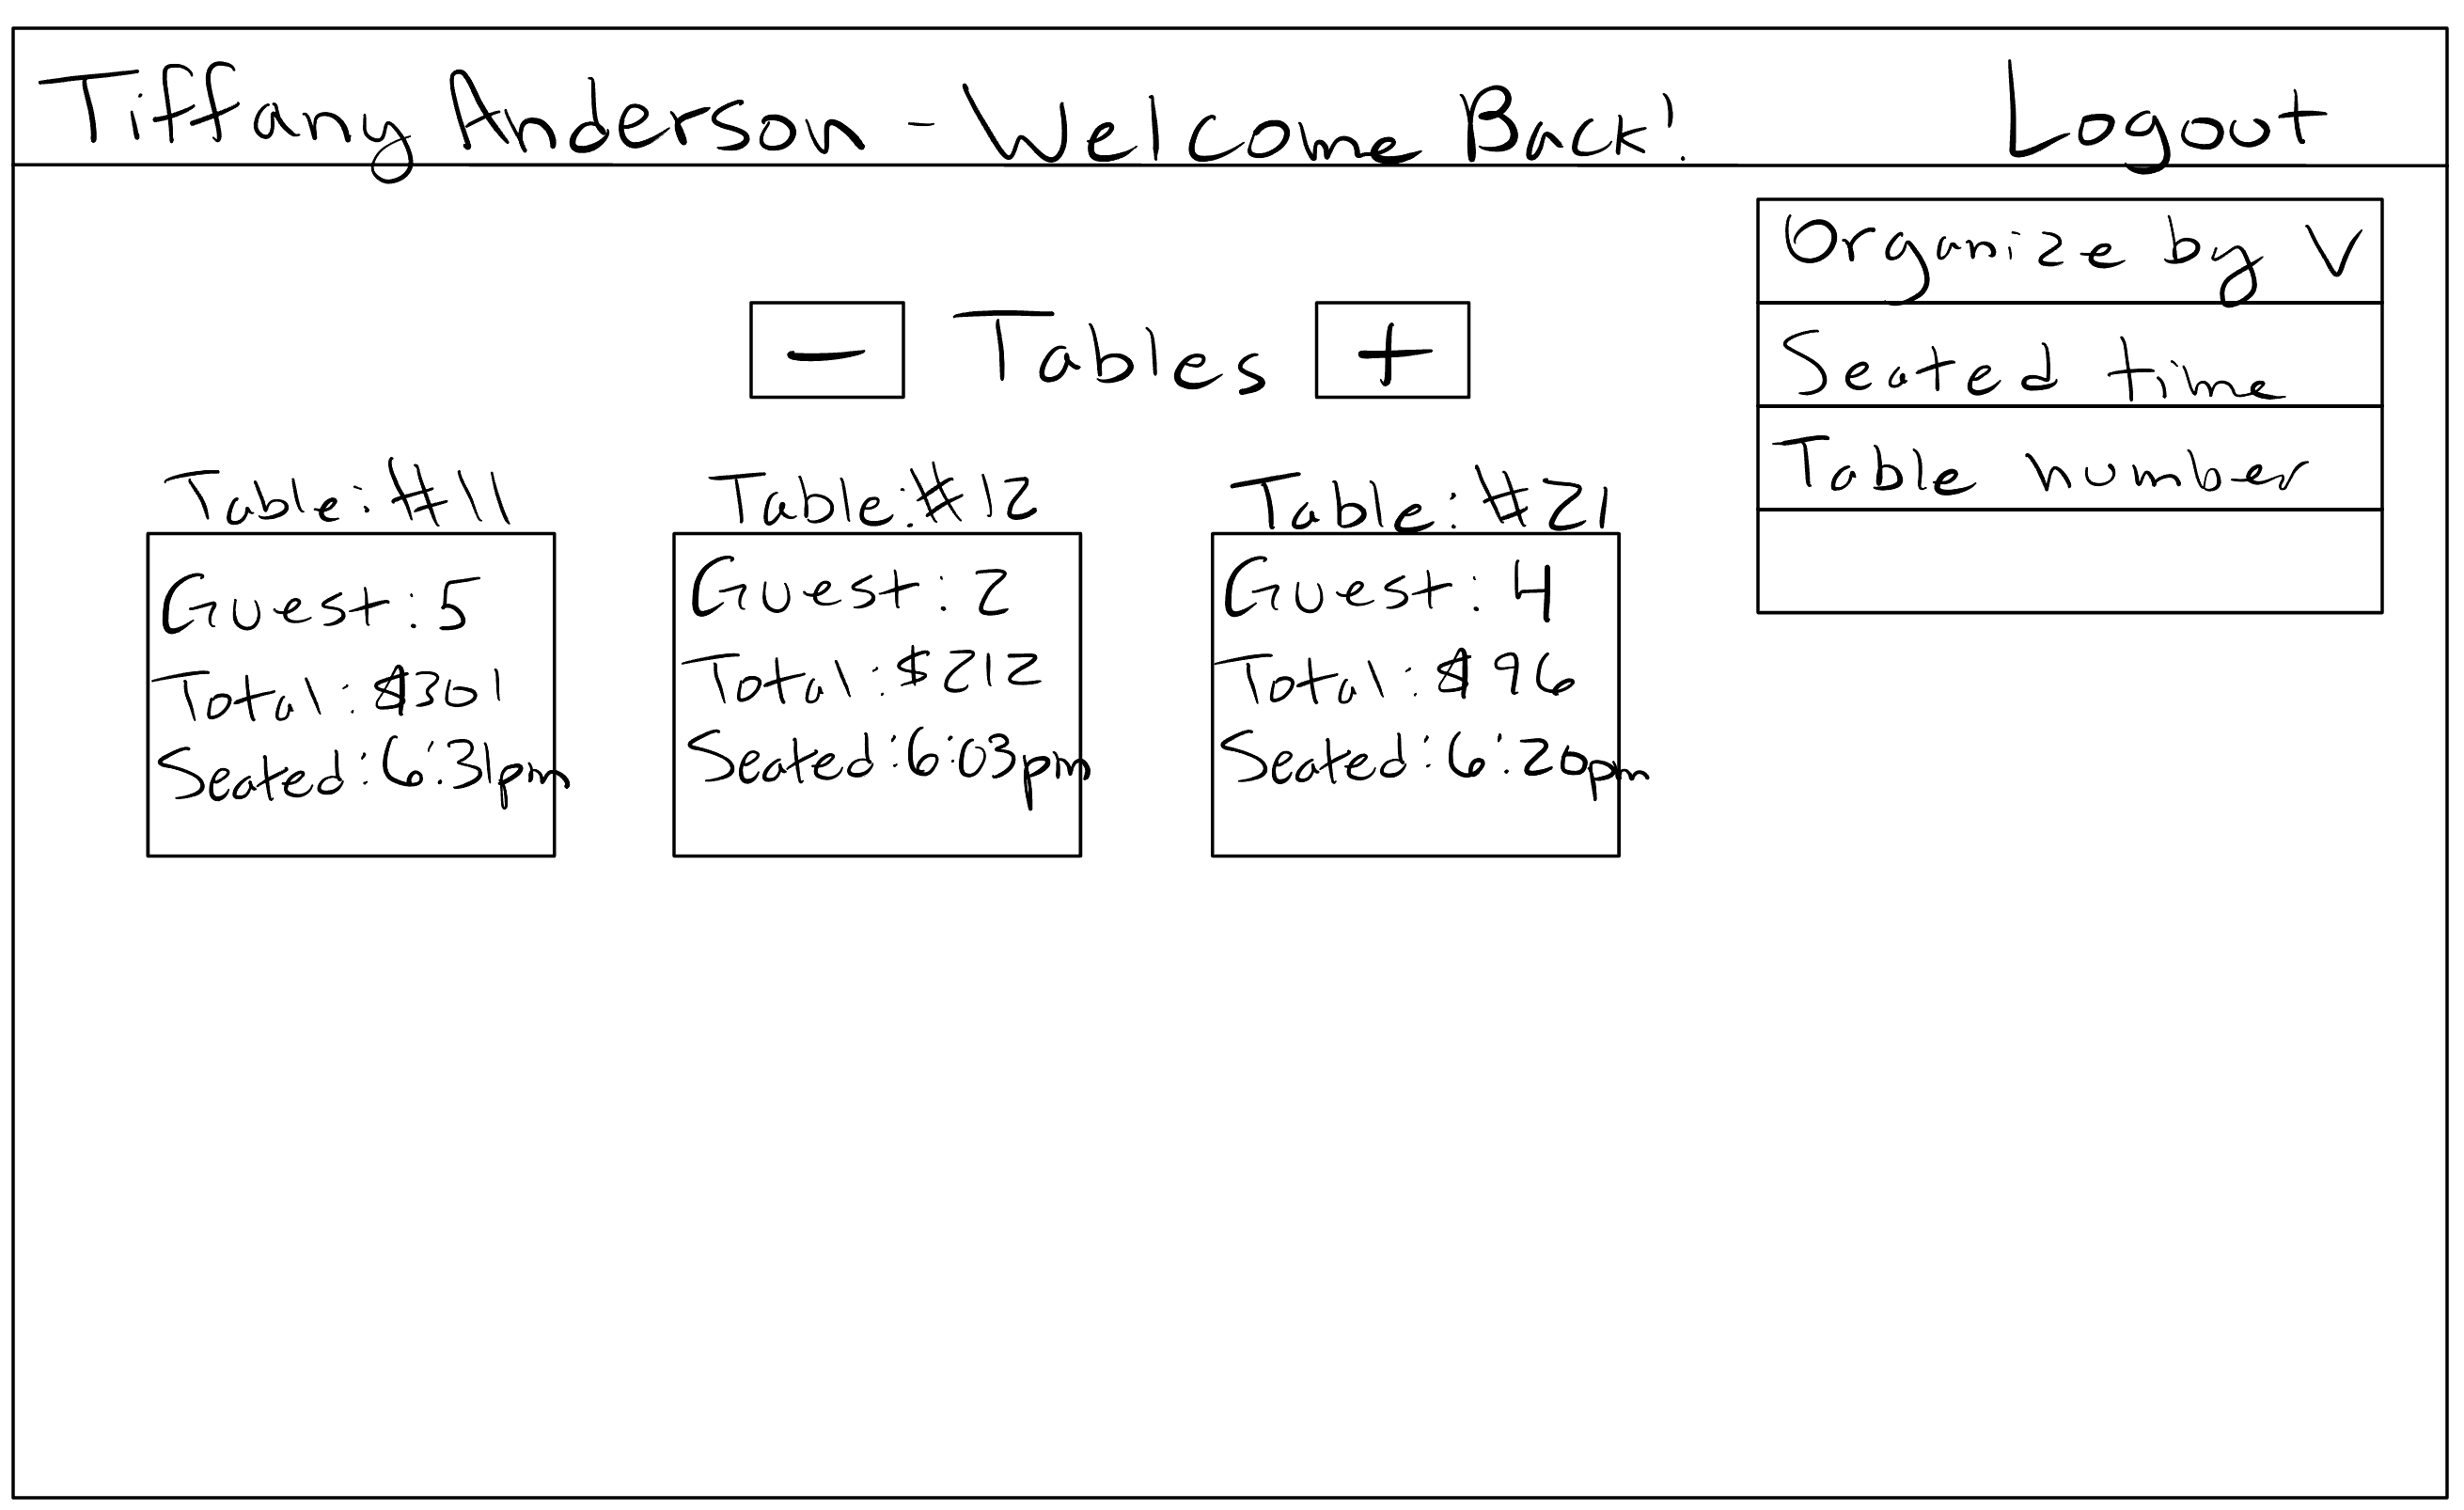 Tiffany Anderson - Welcome Back! Logout
Organize by V
Seated time
Table number
- Tables +
Table:#11
Guest:5
Total:$301
Seated:6:31pm
Table:#12
Guest:2
Total:$212
Seated:6:03pm
Table:#21
Guest:4
Total:$96
Seated:6:20pm